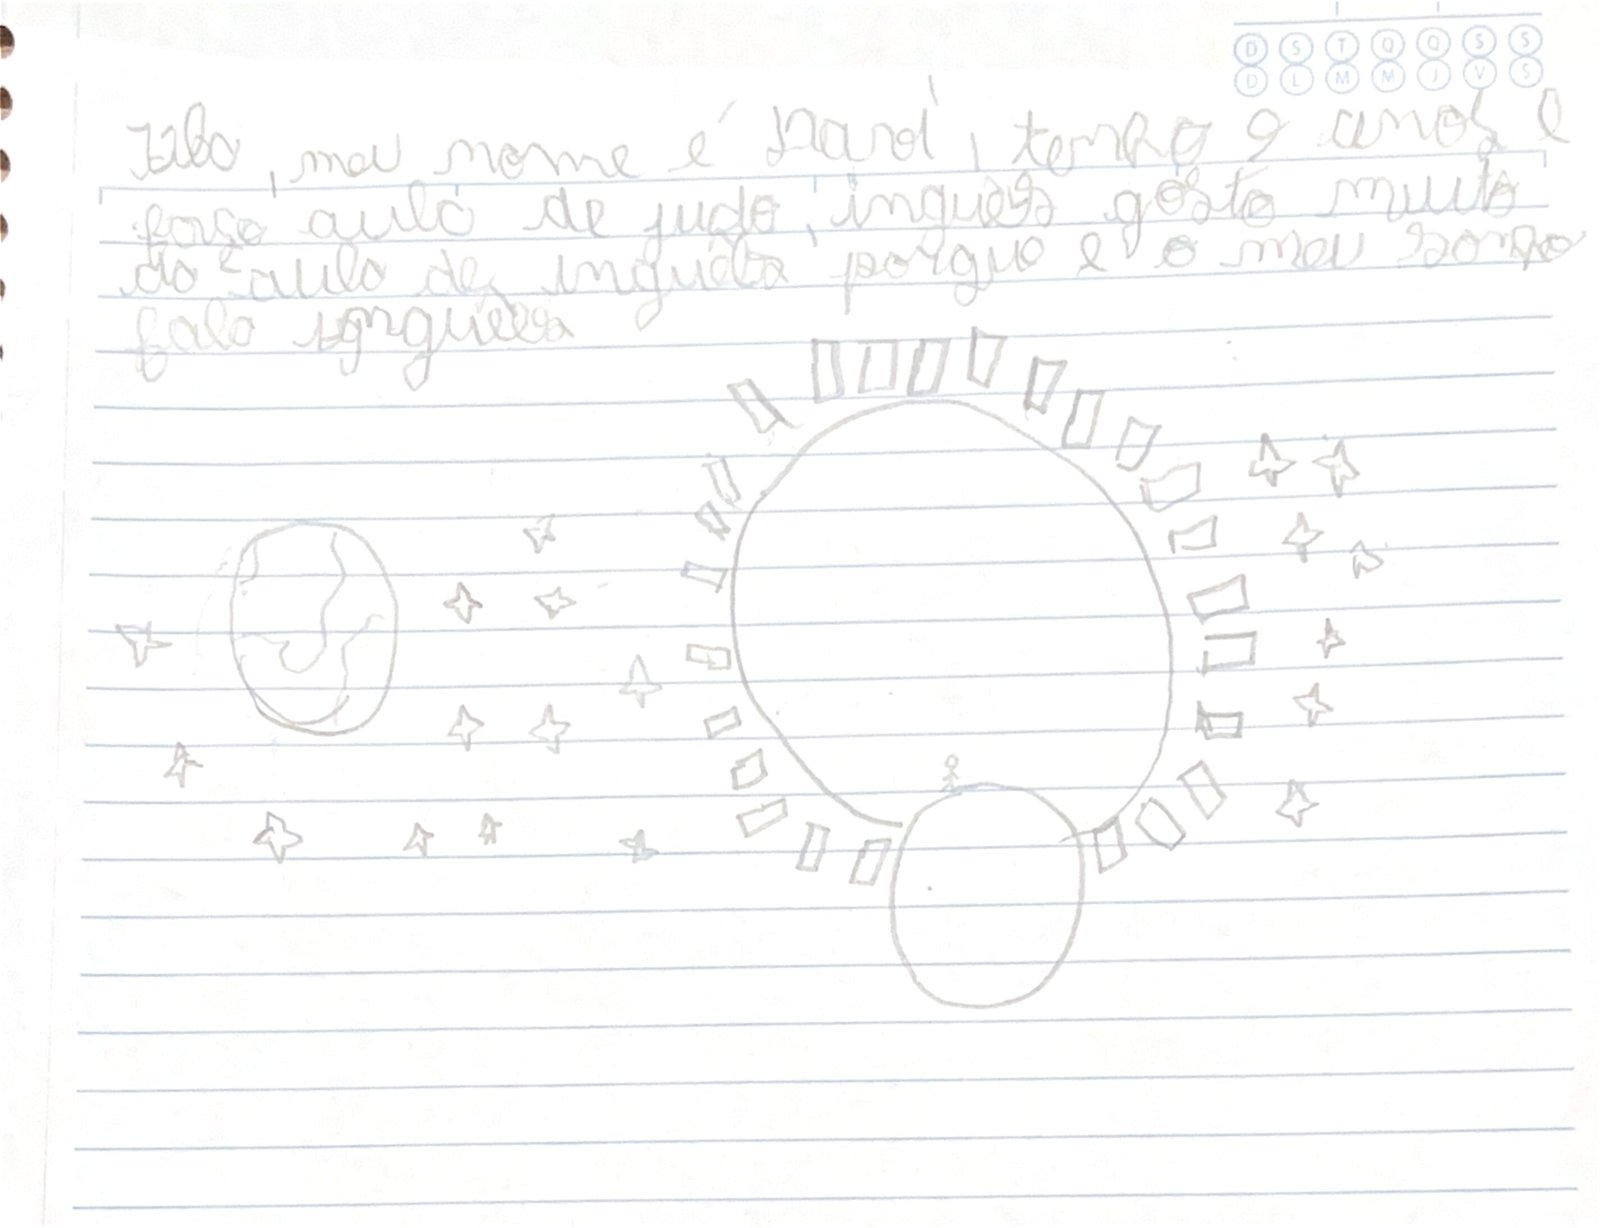 D S T Q Q S S
D L M M J V S
meu nome é tenho 9 anos e
faço aula de judo, inguês gosto muito
da aula de inguês porque e o meu sonho
fala inguês